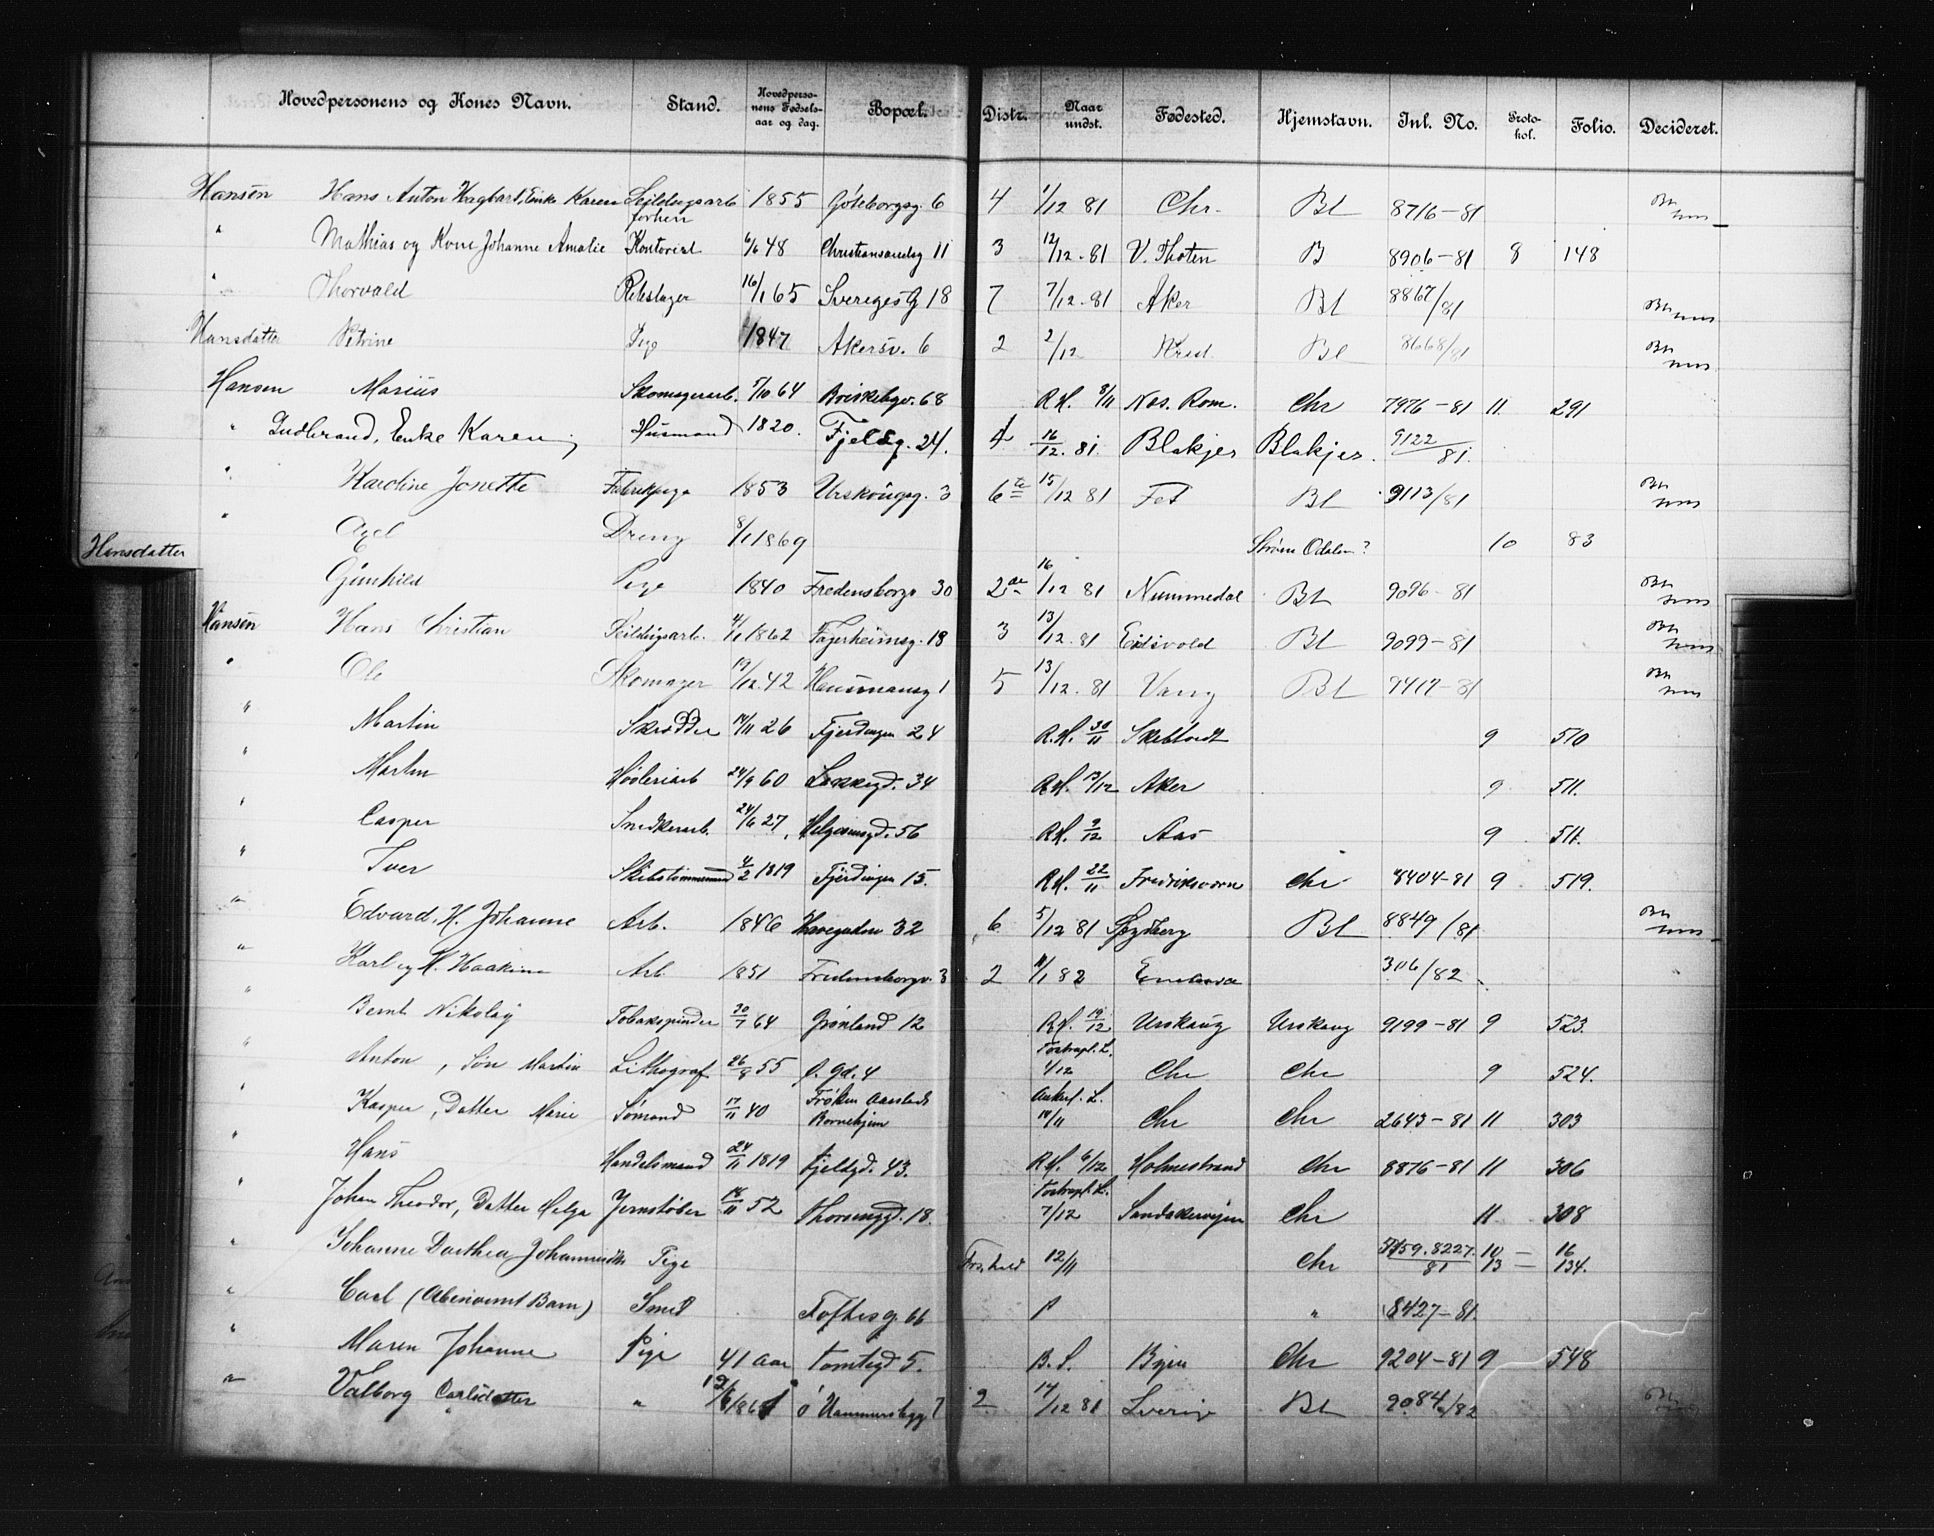 Hovedpersonens og Kones Navn. Stand. Hovedperso-nens Fødsels-aar og dag. Bopæl. Distr. Naar undst. Fødested. Hjemstavn. Inl. No. Proto-kol. Folio. Decideret.
Hansen Hans Anton Hagbart, Enke Karen forhen 1855 Göteborgsg. 6 4 1/12 81 Chr. Bl 8716-81
" Mathias og Kone Johanne Amalie Kontorist 6/6 48 Christiansandsg 11 3 12/12-81 V. Thoten B 8906-81 8 148
" Thorvald Rebslager 16/1 65 Sverigesg 18 7 7/12-81 Aker Bl 8867/81
Hansdatter Petrine Pige 1847 Akersv. 6 2 2/12 Bl 8668/81
Hansen Marius Skomagerarb. 7/10 64 68 R.H. 8/11 Nes. Rom. Chr 7976-81 11. 291
" Gudbrand, Enke Karen Husmand 1820. Fjeldg. 24. 4 16/12. 81. Blakjer Blakjer. 9122/81.
" Karoline Jonette Fabrikpige 1853 Urskougsg. 3 6te 15/12 81 Fet Bl 9113/81
" Axel Dreng 8/1 1869 Strøm Odalen? 10 83
Hansdatter
Gunhild Pige 1840 Fredensborgv 30 2de 16/12 81 Nummedal Bl 9096-81
Hansen Hans Christian Teildrigsarb. 4/11 1862 Fagerheimsg. 18 3 13/12-81 Eidsvold Bl 9099-81
" Ole Skomager 19/12.42 Hausmansg 1 5 13/12-81 Vang Bl 9417-81
" Martin Skrædder 14/11 26 Fjerdingen 24 R.H. 30/11 Skibtvedt 9 510
" Martin Høvleriarb 24/9 60 Lakkegd. 34 R.H. 13/12 Aker 9. 511.
" Casper Snedkerarb. 24/6 27 Helgesensgd. 56 R.H. 9/12 Aas 9. 511.
" Iver Skibstømmermand 4/2 1819 Fjerdingen 15. R.H. 22/11 Fredriksværn Chr 8404-81 9 519.
" Edvard, H. Johanne Arb. 1846 Havegaden 32 6 5/12 81 Spydberg Bl 8849/81
" Karl og H. Haakine Arb 1851 Fredensborgv. 3 2 11/1 82 Enebak 306/82
" Bernt Nikolay Tobakspinder 30/7 64 Grønland 12 R.H. 19/12 Urskaug Urskaug 9199-81 9 523.
" Anton, Søn Martin Lithograf 26/8 55 4 L. 4/12 Chr Chr 9 524.
" Kasper, Datter Marie Sømand 17/11 40 Frøken Børnehjem Ankerl. L. 10/11 Chr Chr 2643-81 11 303
" Hans Handelsmand 24/11 1819 Fjeldgd. 43. R.H. 6/12 Holmestrand Chr 8876-81 11 306
" Johan Theodor, Datter Helga Jernstøber 18/11 52 Thorsensgd. 18. L. 7/12 Sandakerveien Chr 11 308
" Johanne Dorthea Johannesdtr Pige 12/11 Chr 5159.8227./81 10/13 — 16/134.
" Carl (Abenormt Barn) Smed Toftesg. 66 " 8427-81.
" Maren Johanne Pige 41 Aar Tomtegd 5. B.S. Byen Chr 9204-81 9 548
" Valborg Carlsdatter " 7 2 14/12 81 Sverig Bl 9084/82